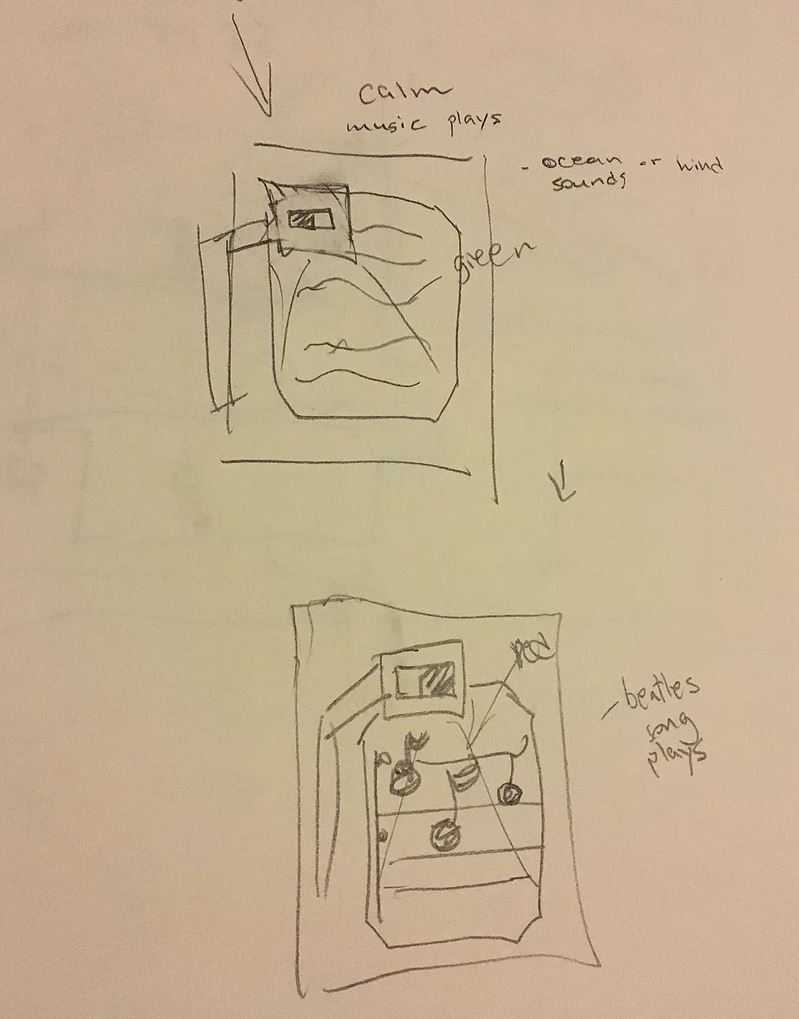 calm
music plays
- ocean or wind
sounds
green
red
- beatles
song
plays